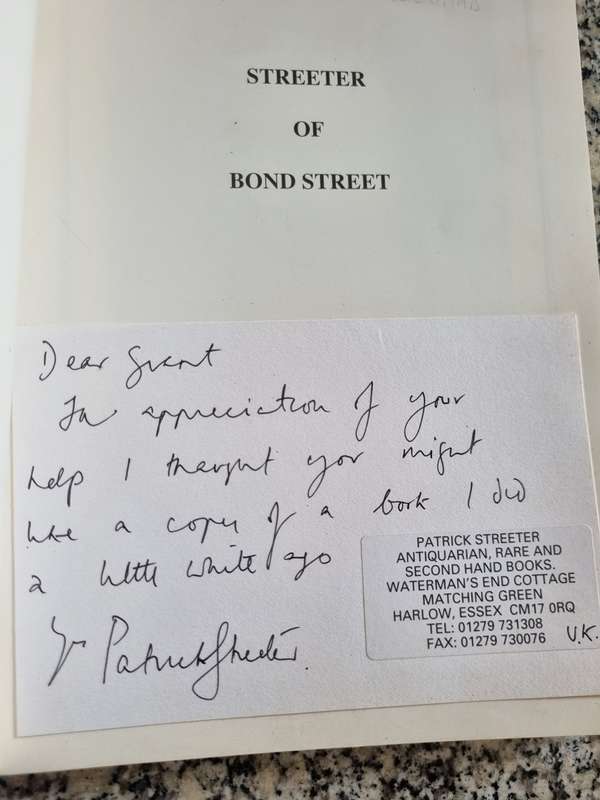 STREETER
OF
BOND STREET
Dear Grant
In appreciation of your
help I thought you might
like a copy of a book I did
a little while ago
Yr Patrick Streeter.
PATRICK STREETER
ANTIQUARIAN, RARE AND
SECOND HAND BOOKS.
WATERMAN'S END COTTAGE
MATCHING GREEN
HARLOW, ESSEX CM17 0RQ
TEL: 01279 731308
FAX: 01279 730076
U.K.